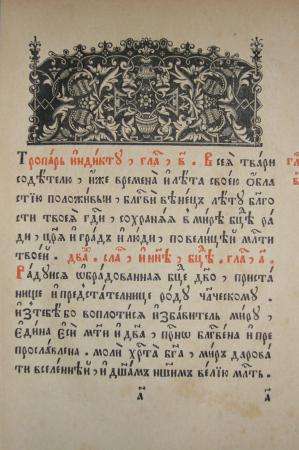 Тропа́рь и҆нди́ктꙋ, гла́, в҃. В сеѧ̀ тва́ри
содѣ́телю, и҆́же времена̀ и҆ лѣ́та своє́ю ѻ҆бла
стїю положи́выи, бл҃гви́ вѣне́цъ лѣ́тꙋ бл҃го
сти твоеѧ̀ гд҇и, сохранѧ́ѧ в ми́рѣ бц҃ею ра́
ди, цр҃ѧ̀ и҆ гра́дъ и҆ лю́ди, по вели́цѣи мл҇ти
твое́и. два̀. сла́, и҆ ны́нѣ, бц҃ѣ. гла́, а҃.
Ра́дꙋисѧ ѡ҆бра́дованнаѧ бц҃е дв҃о, приста́
нище и҆ предста́телнице ро́дꙋ чл҃ческомꙋ.
и҆з тебѣ́ бо воплоти́сѧ и҆зба́витель ми́рꙋ,
є҆ди́на є҆сѝ мт҃и и҆ дв҃а, при́сно бл҃гве́на и҆ пре
просла́влена. молѝ хрт҇а̀ бг҃а, ми́ръ дарова́
ти вселе́ннѣи, и҆ дш҃а́мъ на́шимъ ве́лїю мл҇ть.
а҃ а҃